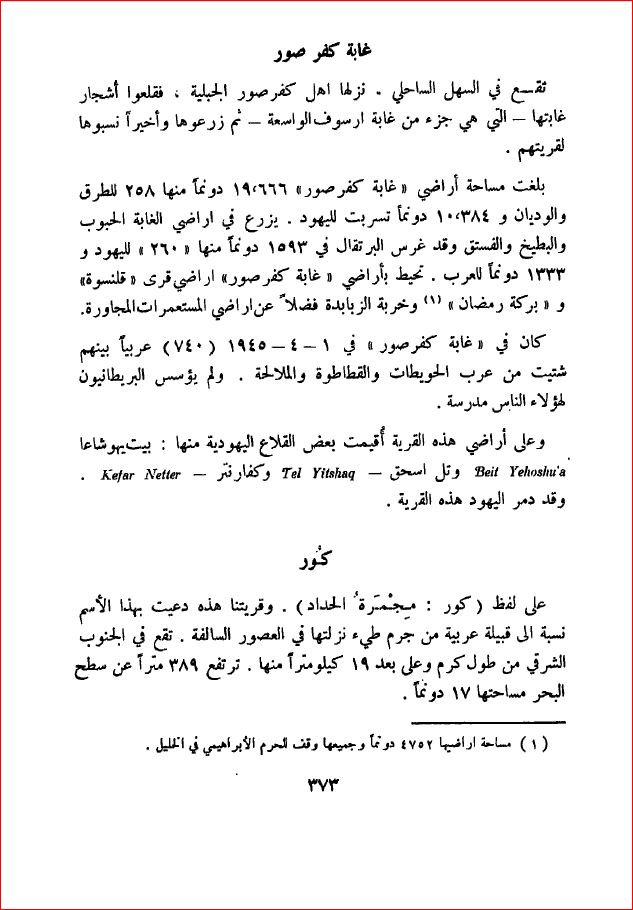 غابة كفر صور
تقـــع في السهل الساحلي . نزلها اهل كفرصور الجبلية ، فقلعوا أشجار
غابتها – التي هي جزء من غابة ارسوف الواسعة – ثم زرعوها وأخيراً نسبوها
لقريتهم .
بلغت مساحة أراضي « غابة كفرصور» ١٩،٦٦٦ دونماً منها ٢٥٨ للطرق
والوديان و ١٠،٣٨٤ دونماً تسربت لليهود . يزرع في اراضي الغابة الحبوب
والبطيخ والفستق وقد غرس البرتقال في ١٥٩٣ دونماً منها « ٢٦٠ » لليهود و
١٣٣٣ دونماً للعرب . تحيط بأراضي « غابة كفرصور» اراضي قرى « قلنسوة»
و « بركة رمضان » (١) وخربة الزبابدة فضلاً عن اراضي المستعمرات المجاورة.
كان في « غابة كفرصور » في ١ – ٤ – ١٩٤٥ (٧٤٠) عربياً بينهم
شتيت من عرب الحويطات والقطاطوة والملالحة . ولم يؤسس البريطانيون
لهؤلاء الناس مدرسة .
وعلى أراضي هذه القرية أُقيمت بعض القلاع اليهودية منها : بيت يهوشاعا
Beit Yehoshu'a وتل اسحق – Tel Yitshaq وكفار نتر – Kefar Netter .
وقد دمر اليهود هذه القرية .
كُور
على لفظ (كور : مِجْمَرَةُ الحداد) . وقريتنا هذه دعيت بهذا الأسم
نسبة الى قبيلة عربية من جرم طيء نزلتها في العصور السالفة . تقع في الجنوب
الشرقي من طولكرم وعلى بعد ١٩ كيلومتراً منها . ترتفع ٣٨٩ متراً عن سطح
البحر مساحتها ١٧ دونماً .
(١) مساحة اراضيها ٤٧٥٢ دونماً وجميعها وقف للحرم الأبراهيمي في الخليل .
٣٧٣